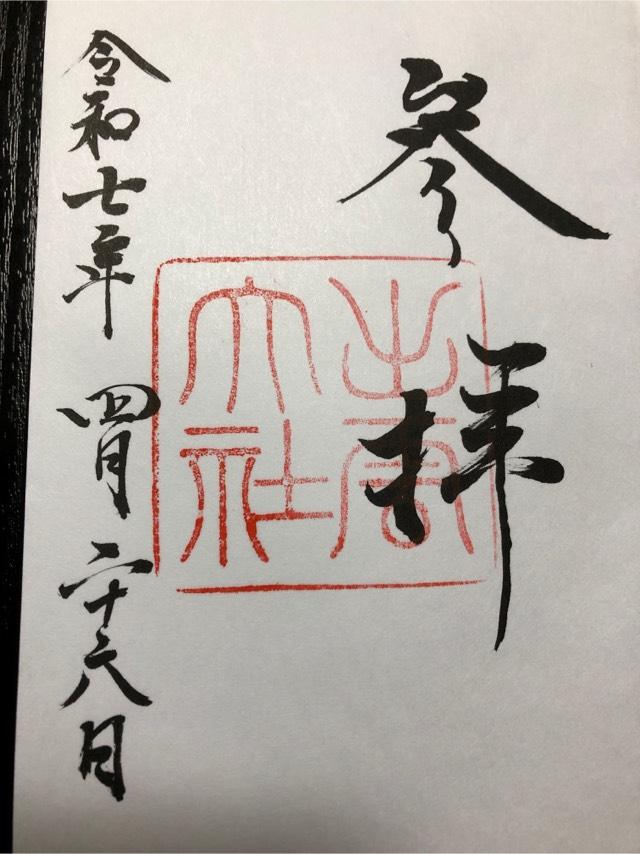 参拝
出雲大社
令和七年 四月 二十六日